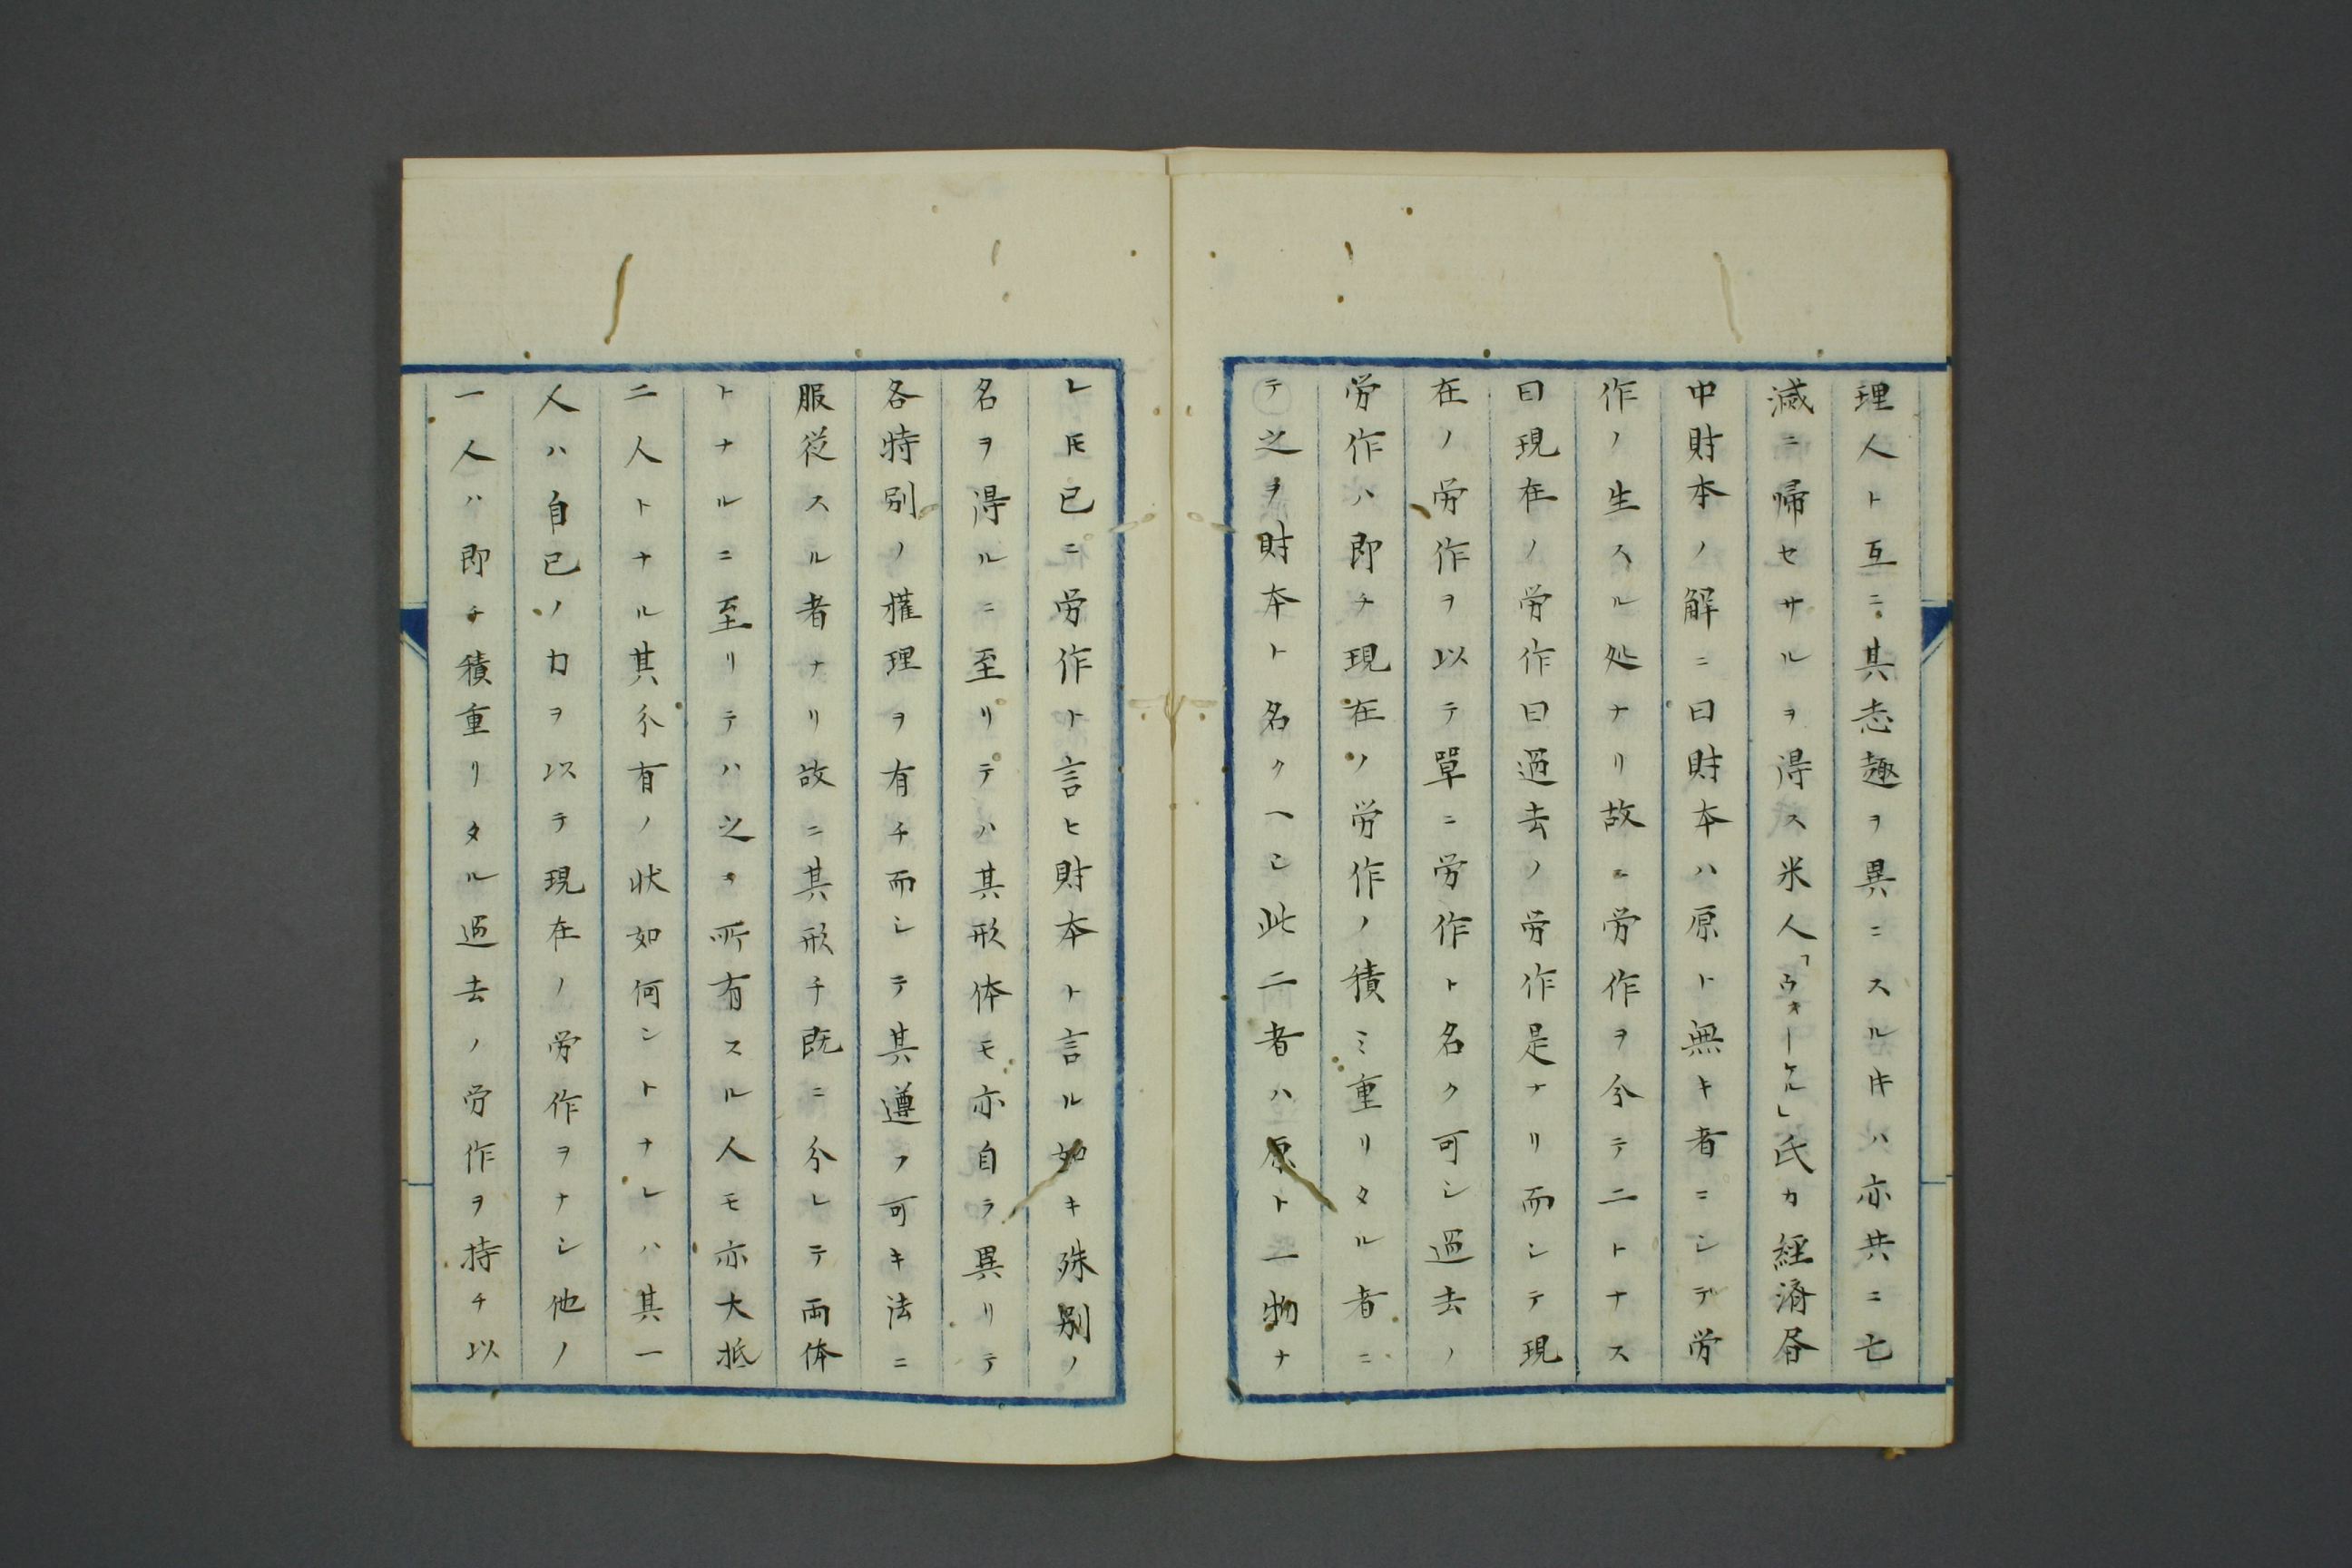 理人ト互ニ其志趣ヲ異ニスル𪜈ハ亦共ニ亡
滅ニ帰セサルヲ得ス米人「ウォーケル」氏カ経済昏
中財本ノ解ニ曰財本ハ原ト無キ者ニシテ労
作ノ生スル処ナリ故ニ労作ヲ分テ二トナス
曰現在ノ労作曰過去ノ労作是ナリ而シテ現
在ノ労作ヲ以テ単ニ労作ト名ク可シ過去ノ
労作ハ即チ現在ノ労作ノ積ミ重リタル者ニ
テ之ヲ財本ト名クヘシ此二者ハ原ト一物ナ
レ𪜈已ニ労作ト言ヒ財本ト言ル如キ殊別ノ
名ヲ得ルニ至リテハ其形体モ亦自ラ異リテ
各特別ノ権理ヲ有チ而シテ其遵フ可キ法ニ
服従スル者ナリ故ニ其形チ既ニ分レテ両体
トナルニ至リテハ之ヲ所有スル人モ亦大抵
二人トナル其分有ノ状如何ントナレハ其一
人ハ自己ノ力ヲ以テ現在ノ労作ヲナシ他ノ
一人ハ即チ積重リタル過去ノ労作ヲ持チ以